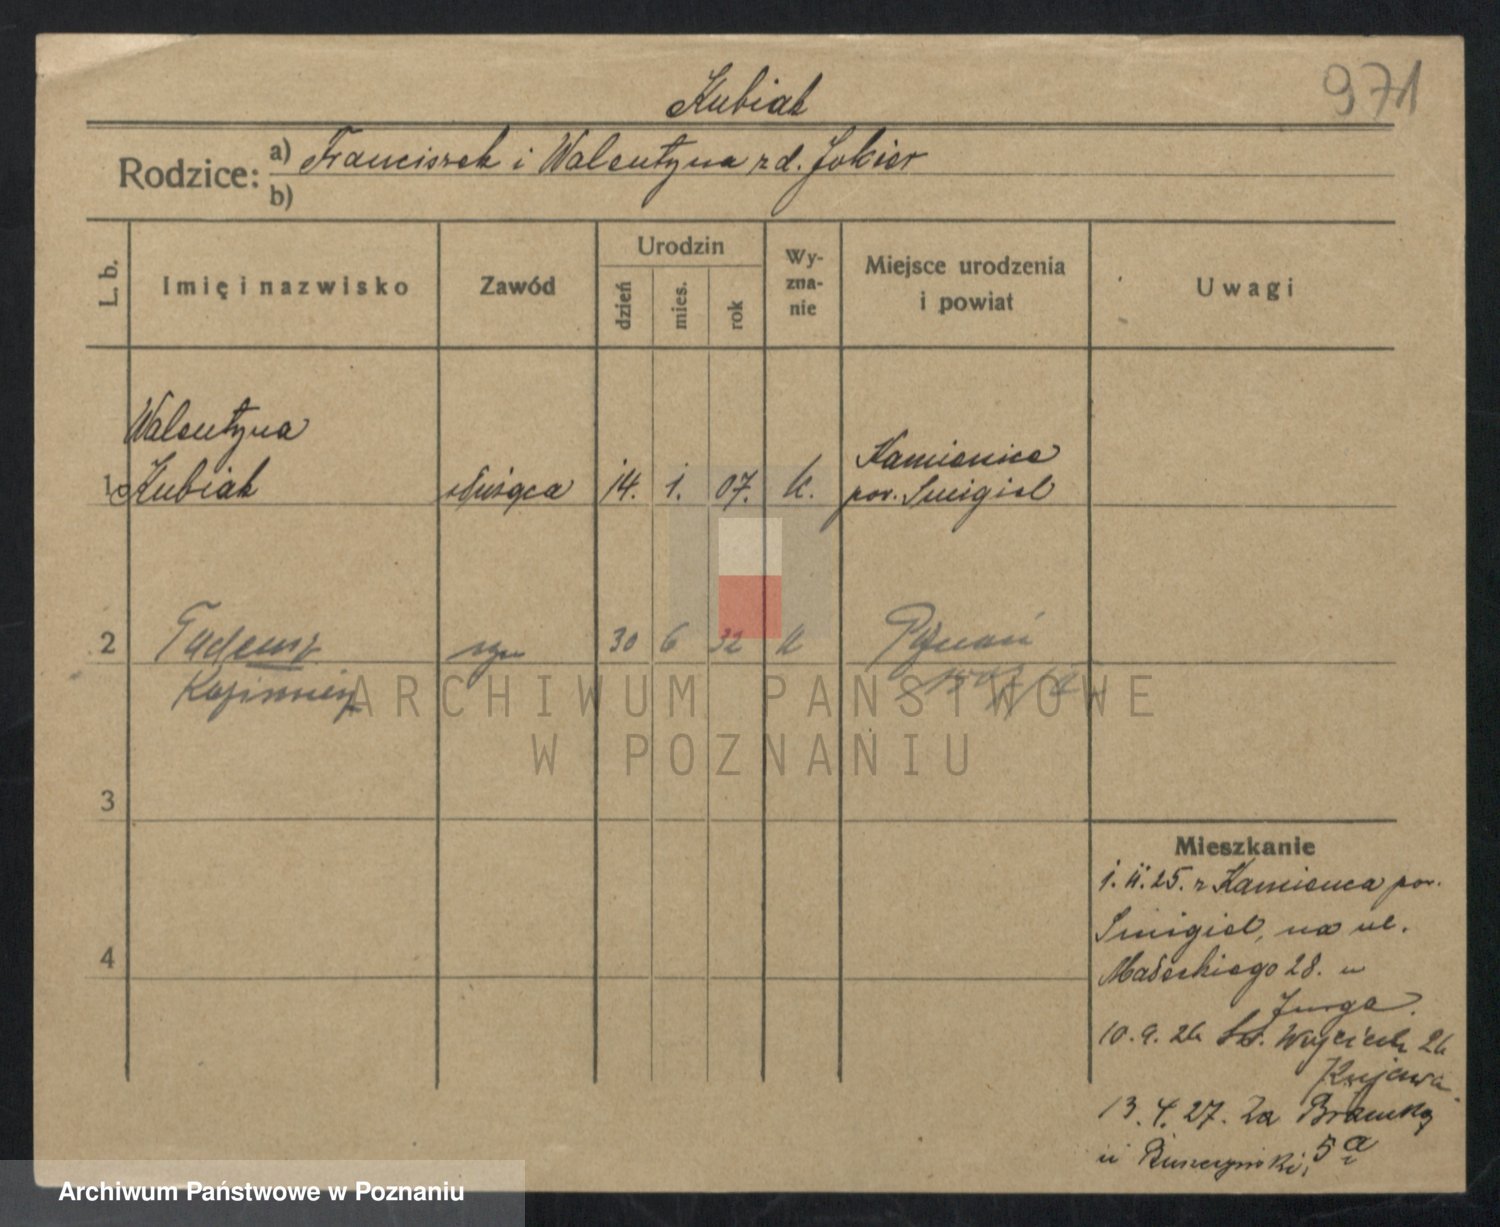 Kubiak
971
Rodzice: a) Franciszek i Walentyna zd. Jokier
b)
L. b.
Imię i nazwisko
Zawód
Urodzin
dzień
mies.
rok
Wy-
zna-
nie
Miejsce urodzenia
i powiat
Uwagi
Walentyna
1 Kubiak służąca 14. 1. 07. k.
Kamienica
pow. Śmigiel
2 Tadeusz syn 30 6 32 k Poznań
Kazimierz
ARCHIWUM PAŃSTWOWE
W POZNANIU
3
4
Mieszkanie
1.11.25. z Kamienca pow.
Śmigiel, na ul.
Małeckiego 28. u
Jurga.
10.9.26 Św. Wojciech 26
Kujawa
13.4.27. Za Bramką
5a
u
Archiwum Państwowe w Poznaniu